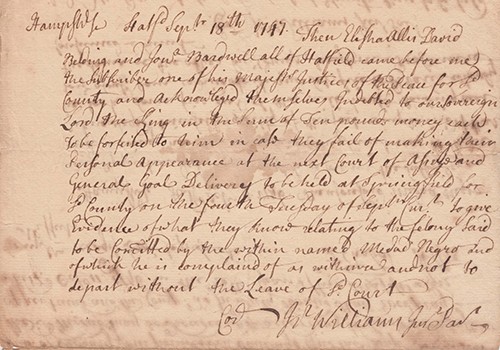 Hampshr ss Hatfd Septr 18th 1747. Then Elisha Allis David
Belding and Jonn. Bardwell all of Hatfield came before me
the Subscriber one of his Majests. Justices of the Peace for sd
County and Acknowledged themselves Indebted to our Sovereign
Lord the King in the Sum of Ten pounds money each
to be forfeited to him in case they fail of making their
Personal Appearance at the next Court of Assize and
General Goal Delivery to be held at Springfield for
sd County on the fourth Tuesday of Septr. Currt. to give
Evidence of what they know relating to the felony said
to be Comitted by the within named Medad Negro and
of which he is complained of as within and not to
depart without the Leave of sd Court
Cor Is. Williams Jus. Pac.